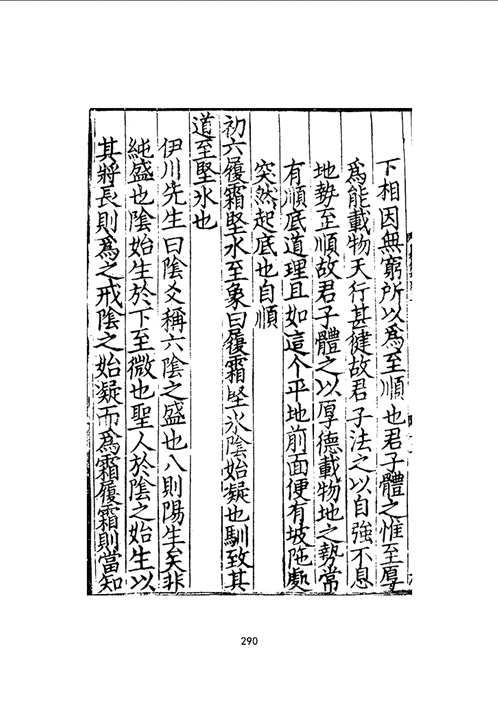 下相因無窮所以為至順也君子體之惟至厚
為能載物天行甚健故君子法之以自強不息
地勢至順故君子體之以厚德載物地之勢常
有順底道理且如這个平地前面便有坡陁處
突然起底也自順
初六履霜堅冰至象曰履霜堅冰陰始凝也馴致其
道至堅冰也
伊川先生曰陰爻稱六陰之盛也八則陽生矣非
純盛也陰始生於下至微也聖人於陰之始生以
其將長則為之戒陰之始凝而為霜履霜則當知
290